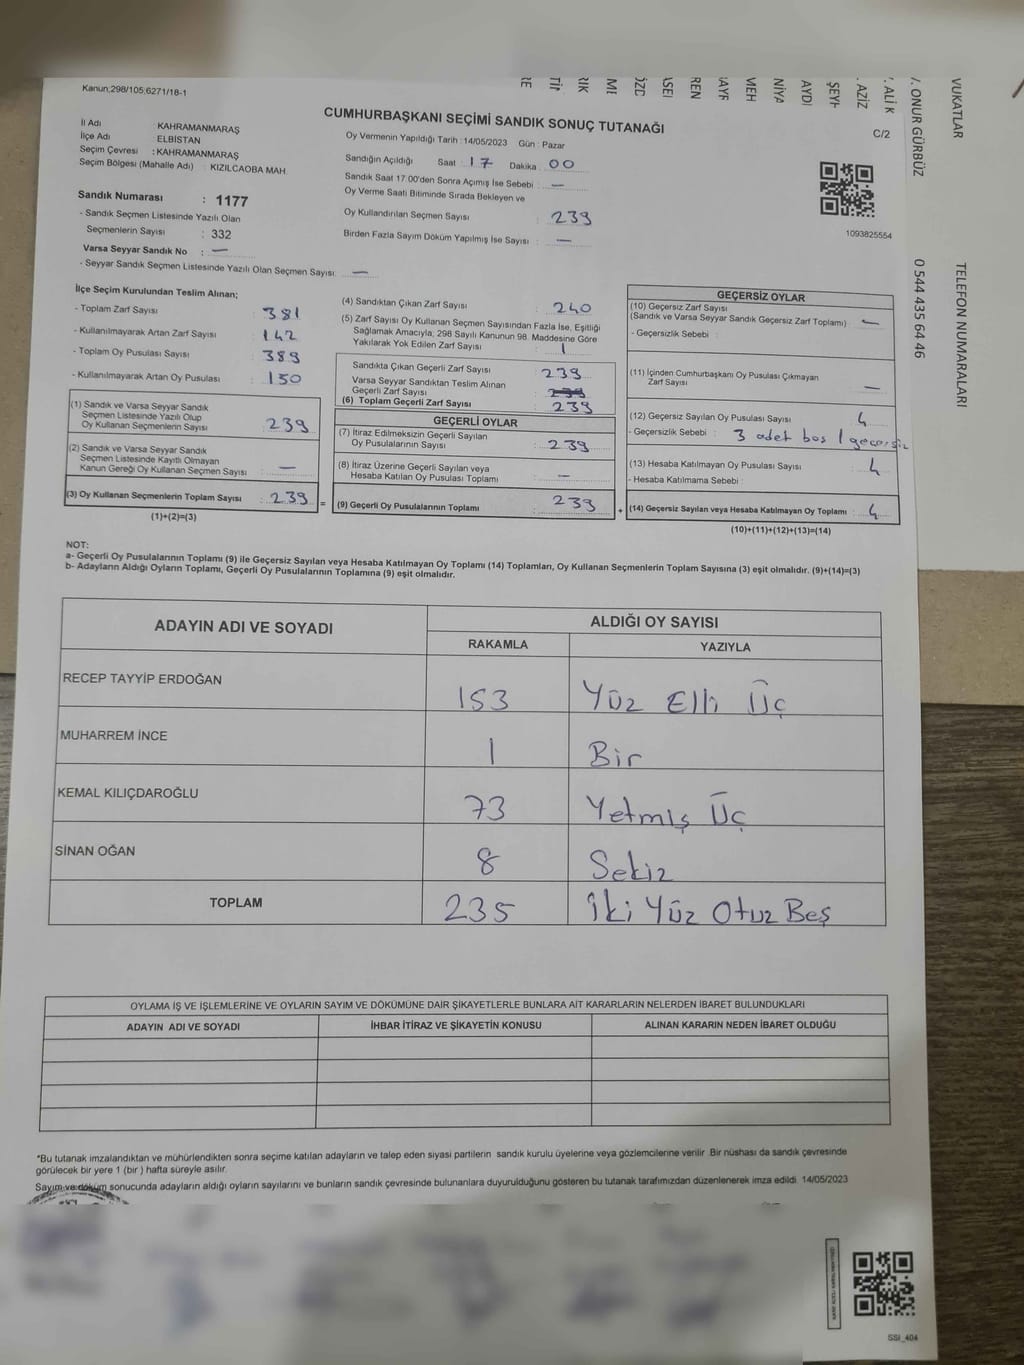 Kanun;298/105;6271/18-1
CUMHURBAŞKANI SEÇİMİ SANDIK SONUÇ TUTANAĞI
C/2
İl Adı KAHRAMANMARAŞ
İlçe Adı ELBİSTAN
Seçim Çevresi : KAHRAMANMARAŞ
Seçim Bölgesi (Mahalle Adı) : KIZILCAOBA MAH.
Sandık Numarası : 1177
- Sandık Seçmen Listesinde Yazılı Olan
Seçmenlerin Sayısı : 332
Varsa Seyyar Sandık No : —
- Seyyar Sandık Seçmen Listesinde Yazılı Olan Seçmen Sayısı: —
Oy Vermenin Yapıldığı Tarih : 14/05/2023 Gün : Pazar
Sandığın Açıldığı Saat 17 Dakika 00
Sandık Saat 17:00'den Sonra Açımış İse Sebebi : —
Oy Verme Saati Bitiminde Sırada Bekleyen ve
Oy Kullandırılan Seçmen Sayısı : 239
Birden Fazla Sayım Döküm Yapılmış İse Sayısı : —
1093825554
İlçe Seçim Kurulundan Teslim Alınan;
- Toplam Zarf Sayısı : 381
- Kullanılmayarak Artan Zarf Sayısı : 142
- Toplam Oy Pusulası Sayısı : 389
- Kullanılmayarak Artan Oy Pusulası : 150
(1) Sandık ve Varsa Seyyar Sandık
Seçmen Listesinde Yazılı Olup
Oy Kullanan Seçmenlerin Sayısı : 239
(2) Sandık ve Varsa Seyyar Sandık
Seçmen Listesinde Kayıtlı Olmayan
Kanun Gereği Oy Kullanan Seçmen Sayısı : —
(3) Oy Kullanan Seçmenlerin Toplam Sayısı : 239 =
(1)+(2)=(3)
(4) Sandıktan Çıkan Zarf Sayısı : 240
(5) Zarf Sayısı Oy Kullanan Seçmen Sayısından Fazla İse, Eşitliği
Sağlamak Amacıyla; 298 Sayılı Kanunun 98. Maddesine Göre
Yakılarak Yok Edilen Zarf Sayısı : 1
Sandıkta Çıkan Geçerli Zarf Sayısı : 239
Varsa Seyyar Sandıktan Teslim Alınan
Geçerli Zarf Sayısı : 239
(6) Toplam Geçerli Zarf Sayısı : 239
GEÇERLİ OYLAR
(7) İtiraz Edilmeksizin Geçerli Sayılan
Oy Pusulalarının Sayısı : 239
(8) İtiraz Üzerine Geçerli Sayılan veya
Hesaba Katılan Oy Pusulası Toplamı : —
(9) Geçerli Oy Pusulalarının Toplamı : 239 +
GEÇERSİZ OYLAR
(10) Geçersiz Zarf Sayısı
(Sandık ve Varsa Seyyar Sandık Geçersiz Zarf Toplamı) : —
- Geçersizlik Sebebi :
(11) İçinden Cumhurbaşkanı Oy Pusulası Çıkmayan
Zarf Sayısı : —
(12) Geçersiz Sayılan Oy Pusulası Sayısı : 4
- Geçersizlik Sebebi : 3 adet boş 1 geçersiz
(13) Hesaba Katılmayan Oy Pusulası Sayısı : 4
- Hesaba Katılmama Sebebi :
(14) Geçersiz Sayılan veya Hesaba Katılmayan Oy Toplamı : 4
(10)+(11)+(12)+(13)=(14)
NOT:
a- Geçerli Oy Pusulalarının Toplamı (9) ile Geçersiz Sayılan veya Hesaba Katılmayan Oy Toplamı (14) Toplamları, Oy Kullanan Seçmenlerin Toplam Sayısına (3) eşit olmalıdır. (9)+(14)=(3)
b- Adayların Aldığı Oyların Toplamı, Geçerli Oy Pusulalarının Toplamına (9) eşit olmalıdır.
ADAYIN ADI VE SOYADI ALDIĞI OY SAYISI
RAKAMLA YAZIYLA
RECEP TAYYİP ERDOĞAN 153 Yüz Elli Üç
MUHARREM İNCE 1 Bir
KEMAL KILIÇDAROĞLU 73 Yetmiş Üç
SİNAN OĞAN 8 Sekiz
TOPLAM 235 İki Yüz Otuz Beş
OYLAMA İŞ VE İŞLEMLERİNE VE OYLARIN SAYIM VE DÖKÜMÜNE DAİR ŞİKAYETLERLE BUNLARA AİT KARARLARIN NELERDEN İBARET BULUNDUKLARI
ADAYIN ADI VE SOYADI İHBAR İTİRAZ VE ŞİKAYETİN KONUSU ALINAN KARARIN NEDEN İBARET OLDUĞU
*Bu tutanak imzalandıktan ve mühürlendikten sonra seçime katılan adayların ve talep eden siyasi partilerin sandık kurulu üyelerine veya gözlemcilerine verilir. Bir nüshası da sandık çevresinde
görülecek bir yere 1 (bir ) hafta süreyle asılır.
Sayım ve döküm sonucunda adayların aldığı oyların sayılarını ve bunların sandık çevresinde bulunanlara duyurulduğunu gösteren bu tutanak tarafımızdan düzenlenerek imza edildi. 14/05/2023
SSİ_404
VUKATLAR
TELEFON NUMARALARI
. ONUR GÜRBÜZ
0 544 435 64 46
. ALİ K
. AZİZ
ŞEYH
AYDI
NİYA